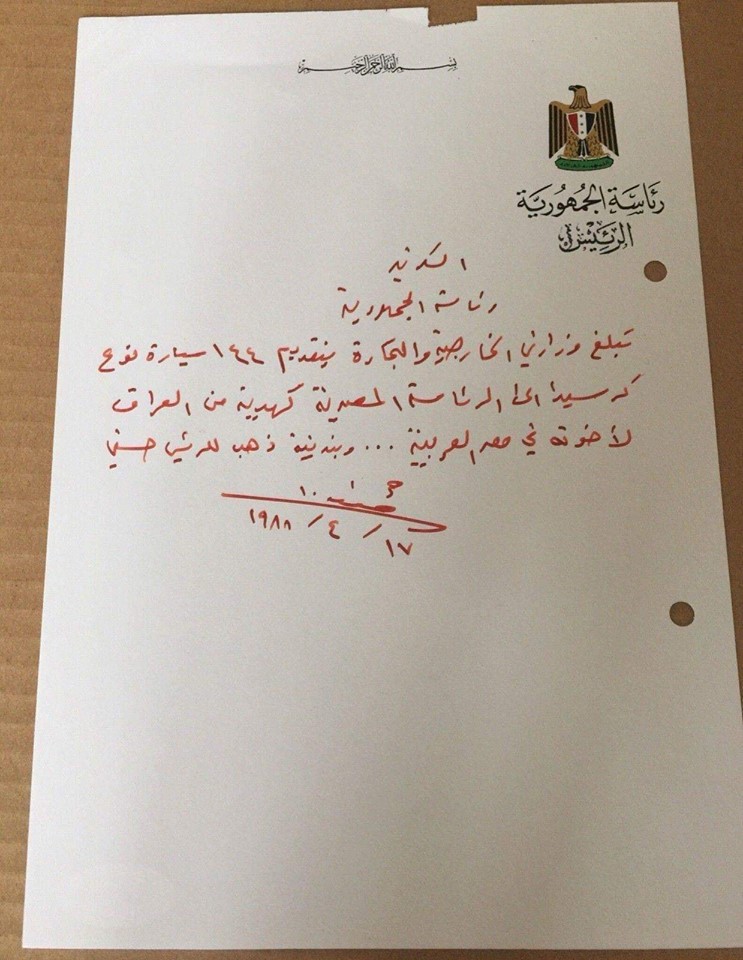 بسم الله الرحمن الرحيم
رئاسة الجمهورية
الرئيس
رئاسة الجمهورية
تبلغ وزارتي الخارجية والتجارة بتقديم ١٤٤ سيارة نوع
كرسيدا الى الرئاسة المصرية كهدية من العراق
لأخوته في مصر العربية ... وبندقية ذهب للرئيس حسني
١٧ / ٤ / ١٩٨٨